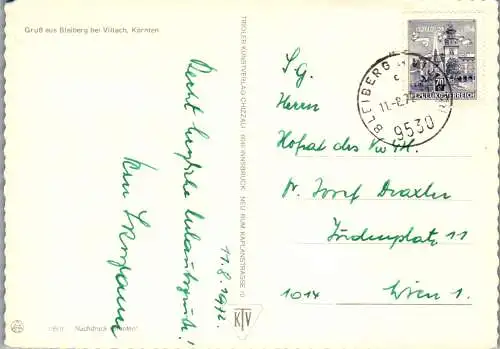 Gruß aus Bleiberg bei Villach, Kärnten
Recht herzliche Urlaubsgrüße!
11.8.1972.
TIROLER KUNSTVERLAG CHIZZALI 6091 INNSBRUCK - NEU RUM KAPLANSTRASSE 10
KTV
Nachdruck verboten
S.G.
Herrn
Hofrat des VwGH.
Dr. Josef Draxler
Judenplatz 11
1014 Wien 1.
BLEIBERG
11.-8.72
9530
REPUBLIK ÖSTERREICH